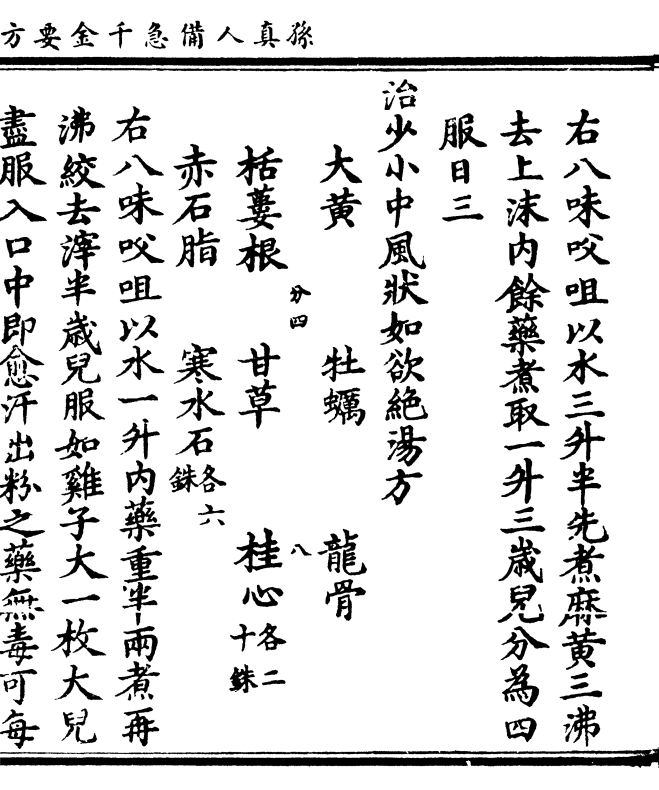 孫真人備急千金要方
右八味㕮咀以水三升半先煮麻黄三沸
去上沫内餘藥煮取一升三歲兒分為四
服日三
治少小中風狀如欲絶湯方
大黄 牡蠣 龍骨
分四 八
栝蔞根 甘草 桂心各二十銖
赤石脂 寒水石各六銖
右八味㕮咀以水一升内藥重半兩煮再
沸絞去滓半歲兒服如雞子大一枚大兒
盡服入口中即愈汗出粉之藥無毒可每